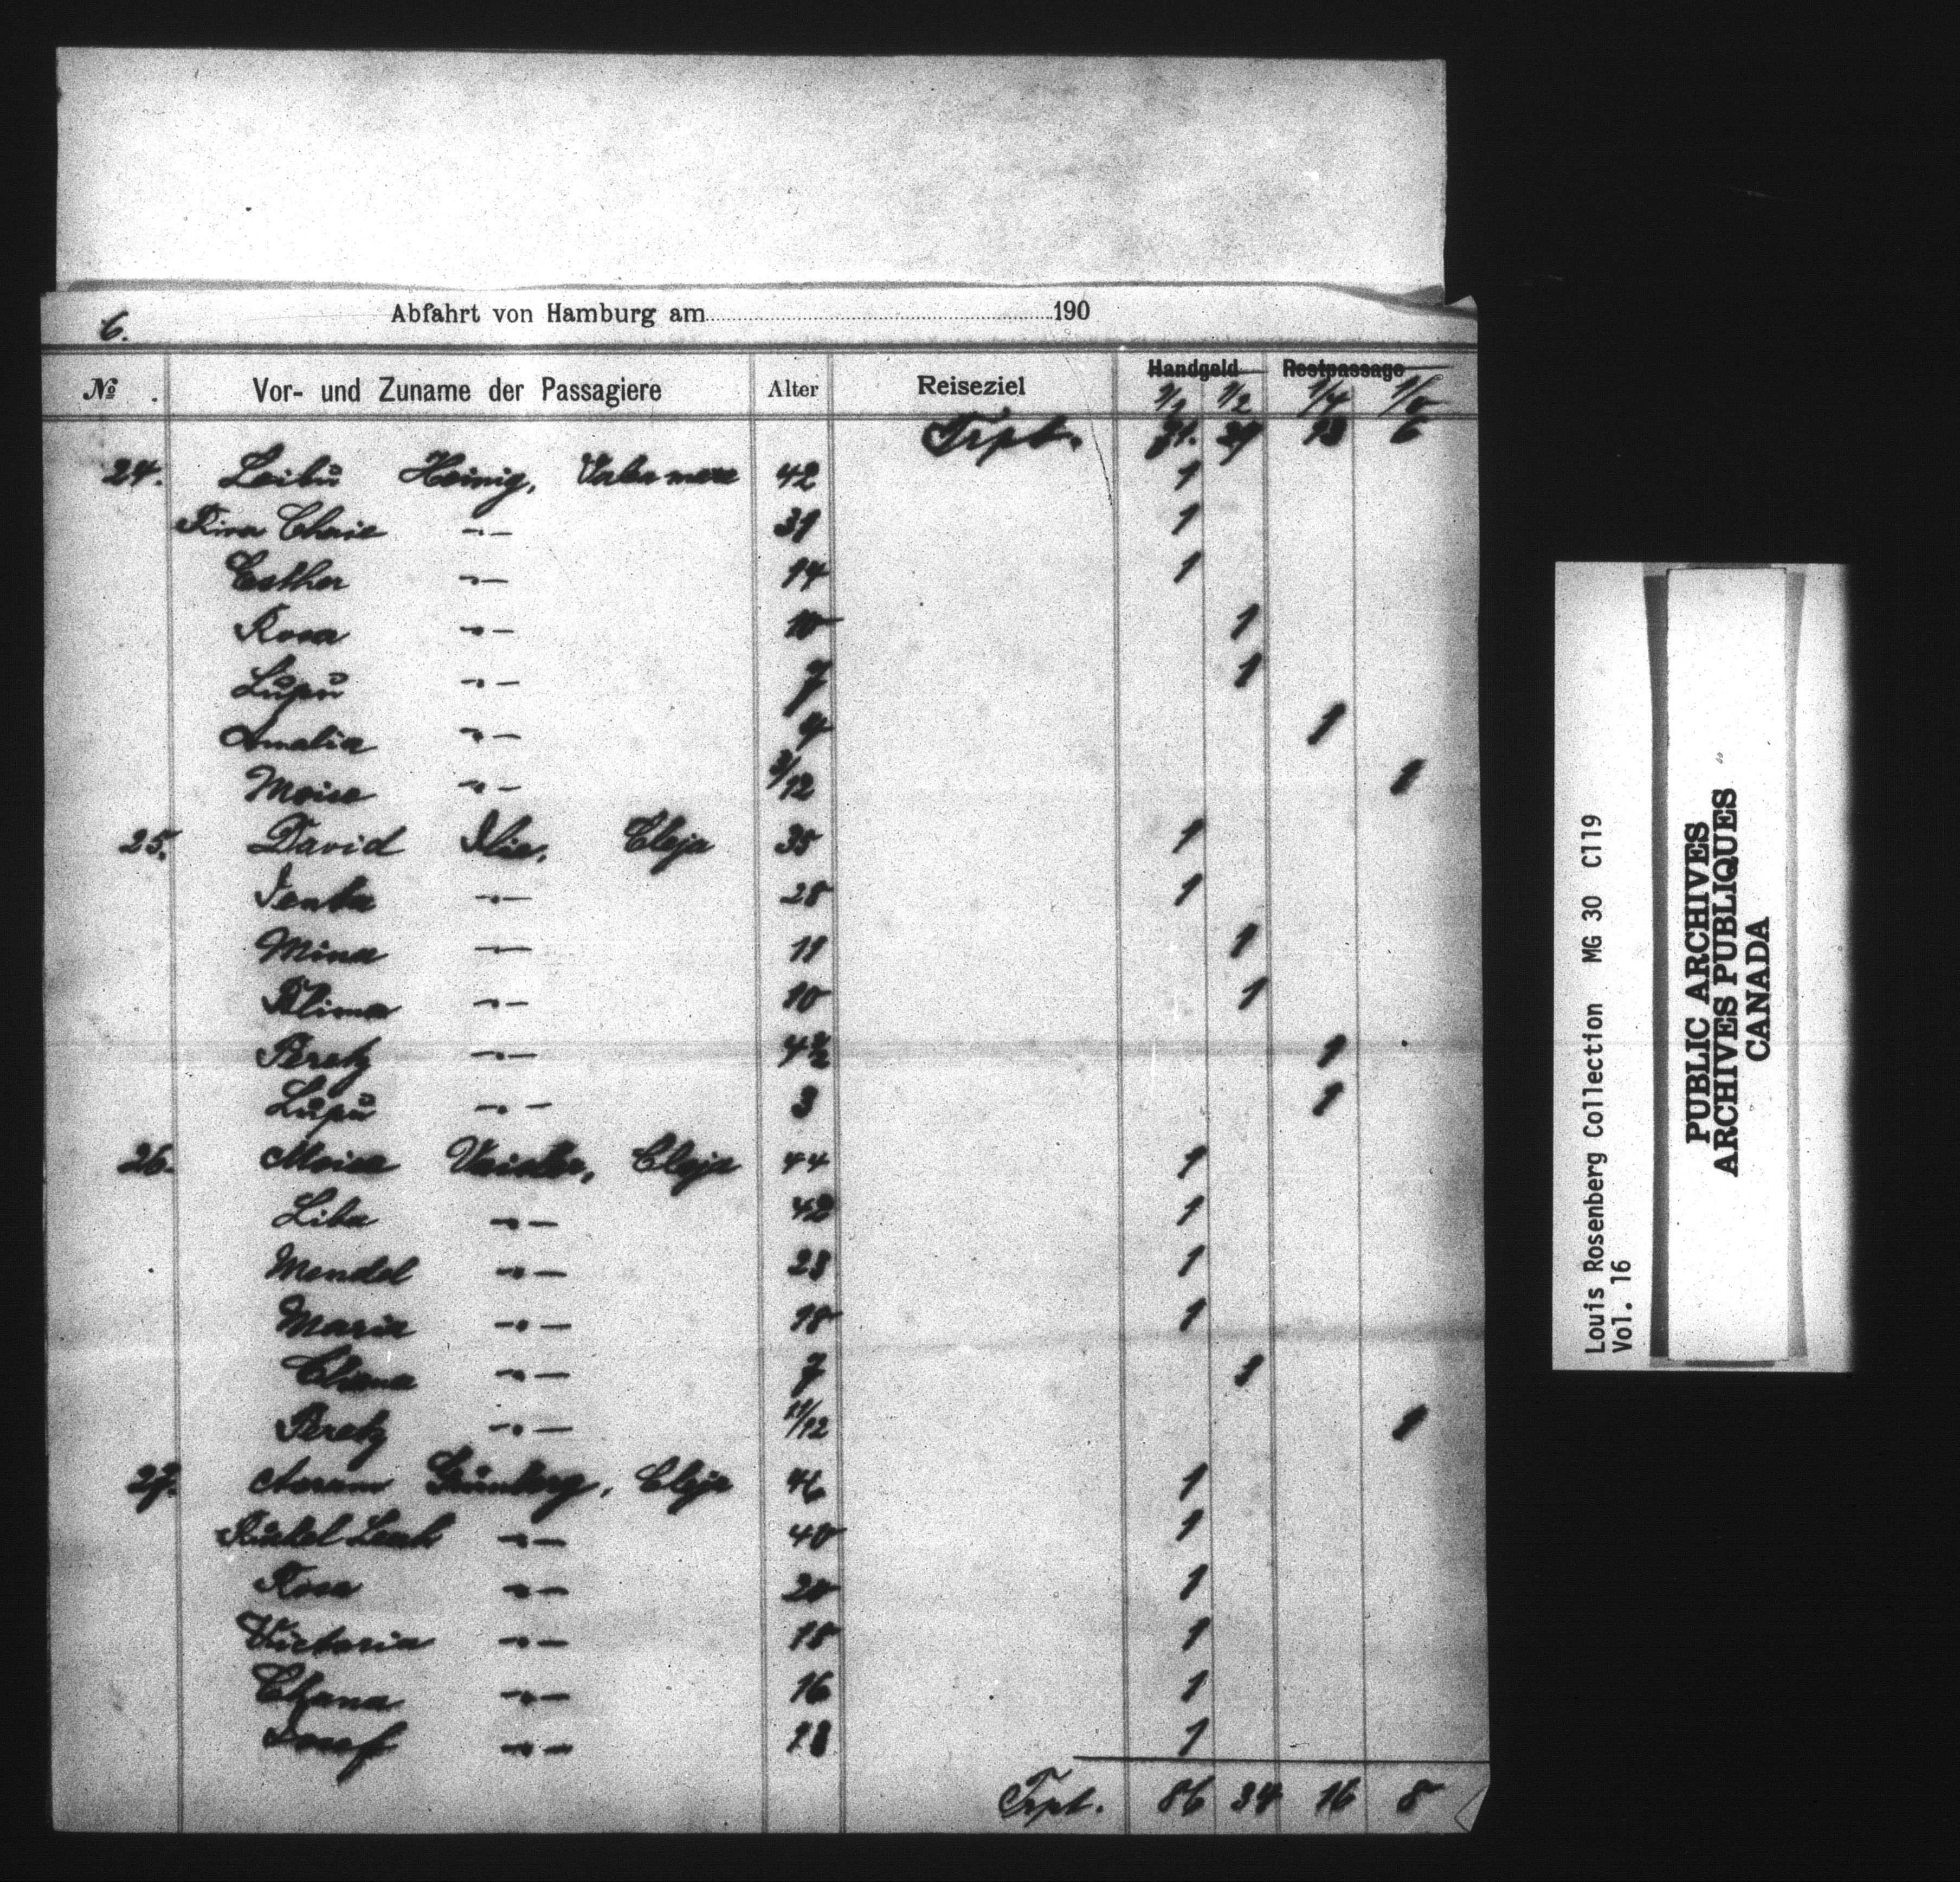 6.
Abfahrt von Hamburg am 190
№ Vor- und Zuname der Passagiere Alter Reiseziel Handgeld Restpassage
1/1 1/2 1/4 1/0
Trpt. 71. 29 13 6
24. Leibŭ Heinig, Valea mare 42 1
Chaie -"- 39 1
Esther -"- 14 1
Rosa -"- 10 1
Lŭpŭ -"- 7 1
Amalia -"- 4 1
Moise -"- 3/12 1
25. David Ilie, Cleja 35 1
Ienta -"- 28 1
Mina -"- 11 1
-"- 10 1
Peretz -"- 4 1/2 1
Lŭpŭ -"- 3 1
26. Moise Cleja 44 1
Liba -"- 42 1
Mendel -"- 23 1
Maria -"- 18 1
-"- 7 1
Peretz -"- 11/12 1
27. Avram Grünberg, Cleja 46 1
Leah -"- 40 1
Rosa -"- 20 1
Victoria -"- 18 1
Chana -"- 16 1
Iosef -"- 13 1
Trpt. 86 34 16 8
Louis Rosenberg Collection MG 30 C119
Vol. 16
PUBLIC ARCHIVES
ARCHIVES PUBLIQUES
CANADA